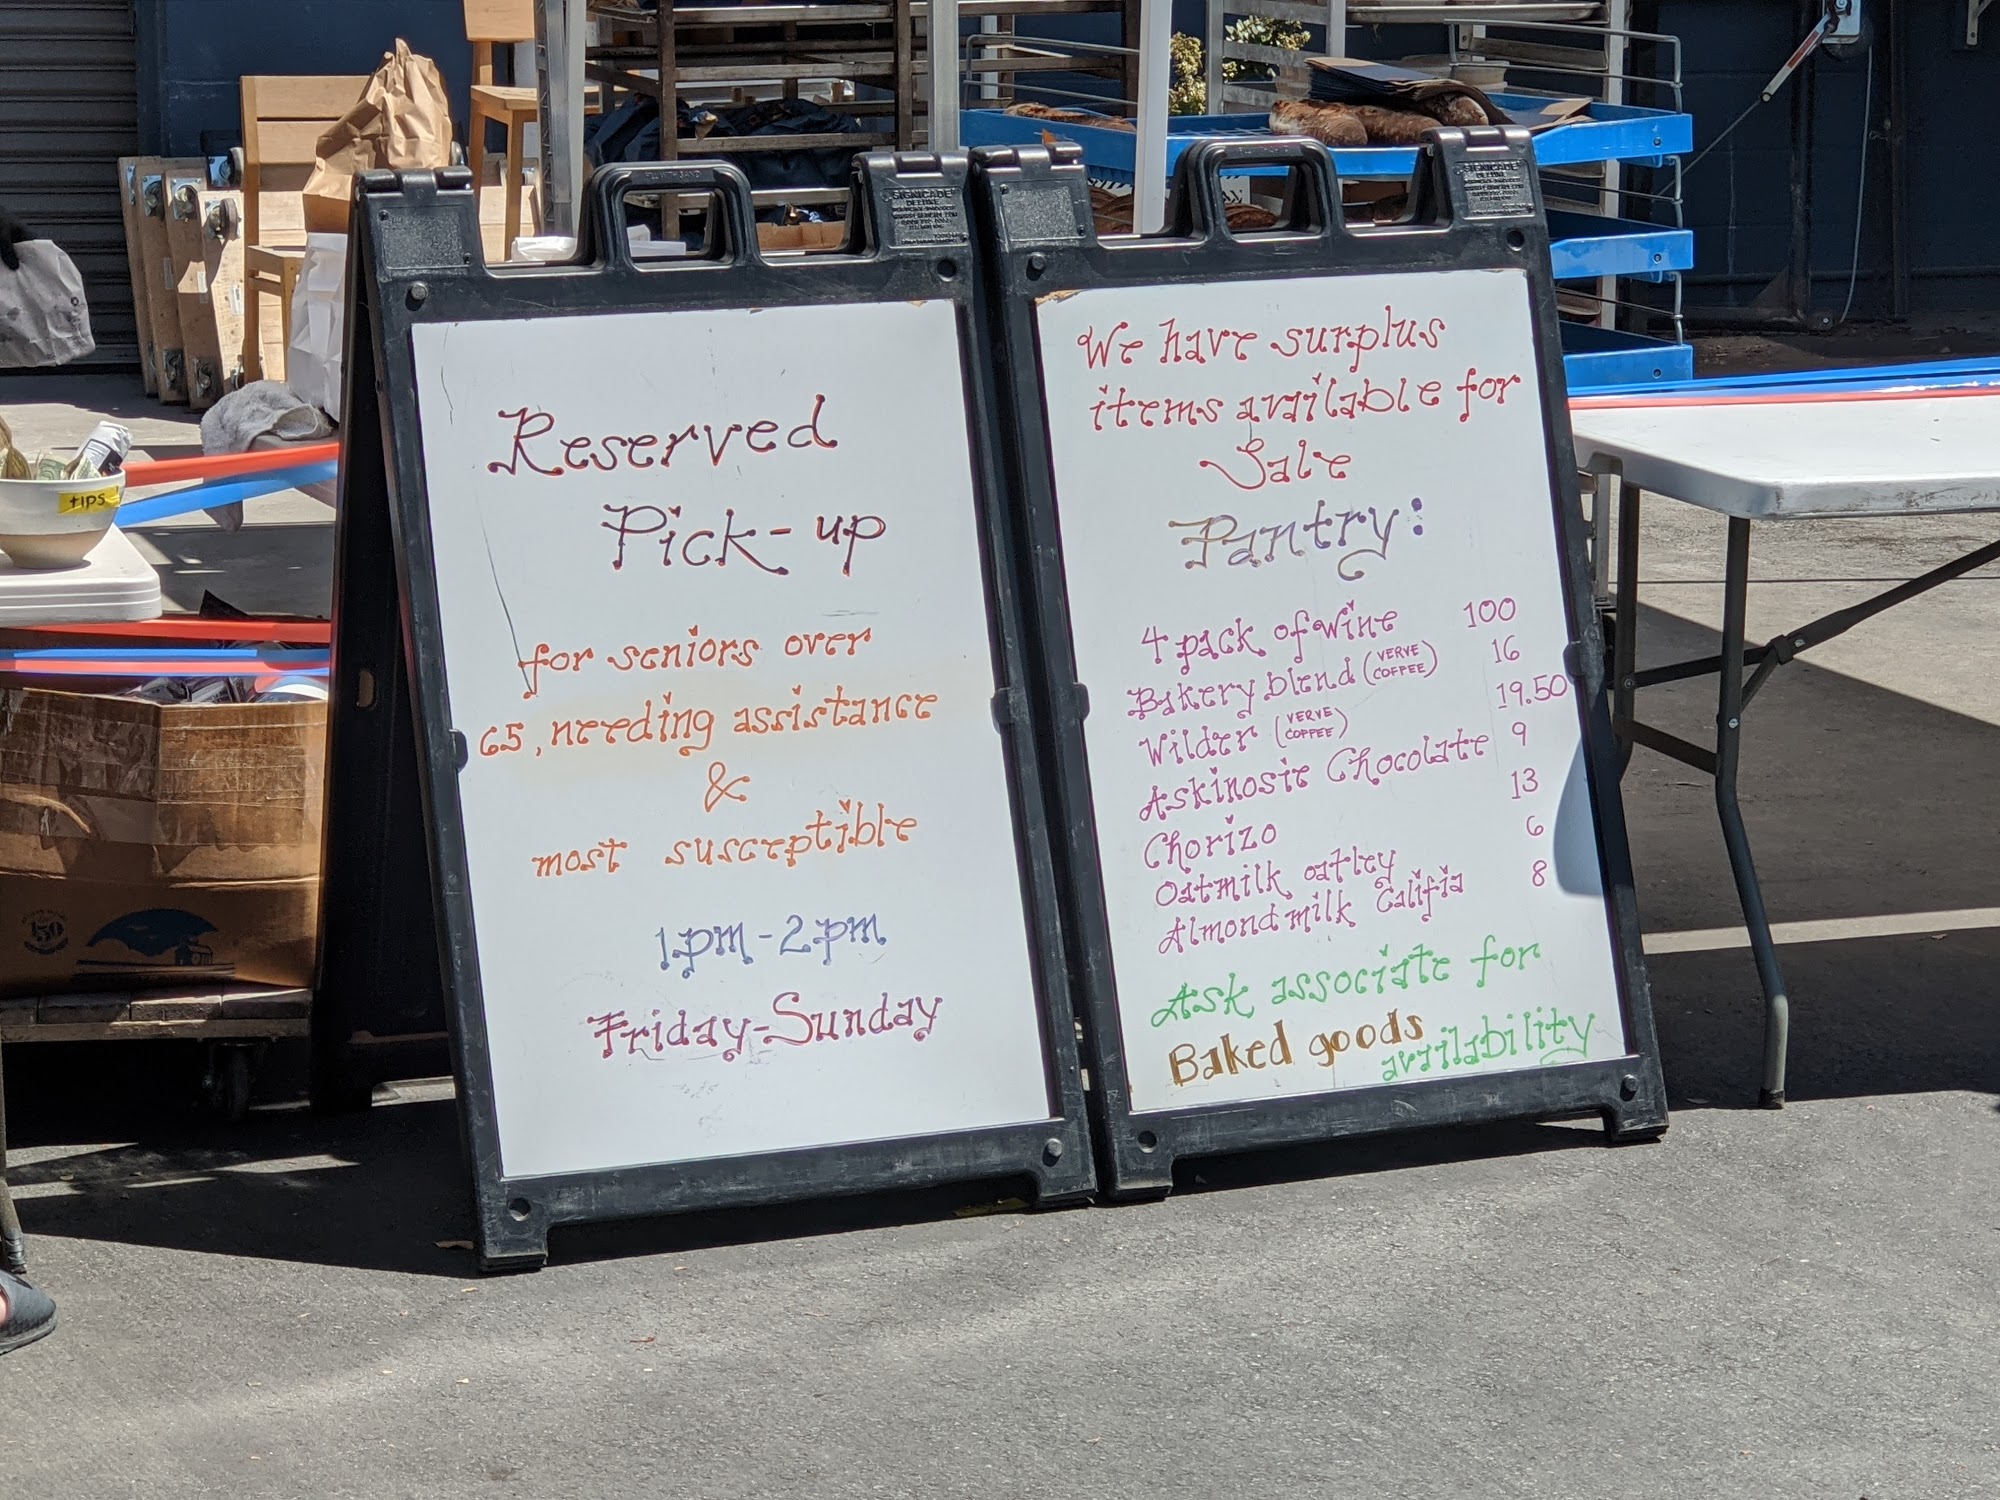 FILL WITH SAND
SIGNICADE
DELUXE
SIGNICADE
DELUXE
tips
Reserved
Pick-up
for seniors over
65, needing assistance
&
most susceptible
1pm-2pm
Friday-Sunday
We have surplus
items available for
Sale
Pantry:
4 pack of wine 100
Bakery blend (VERVE COFFEE) 16
Wilder (VERVE COFFEE) 19.50
Askinosie Chocolate 9
Chorizo 13
Oatmilk oatley 6
Almondmilk Califia 8
Ask associate for
Baked goods
availability
150